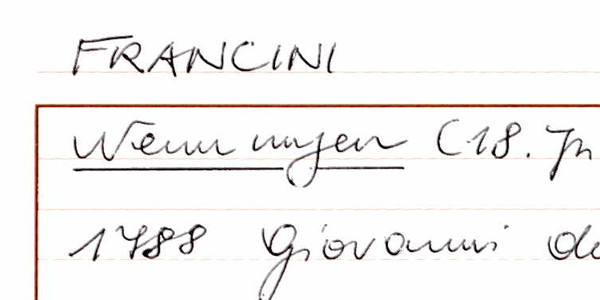 FRANCINI
Nennungen (18. Jh
1788 Giovanni de